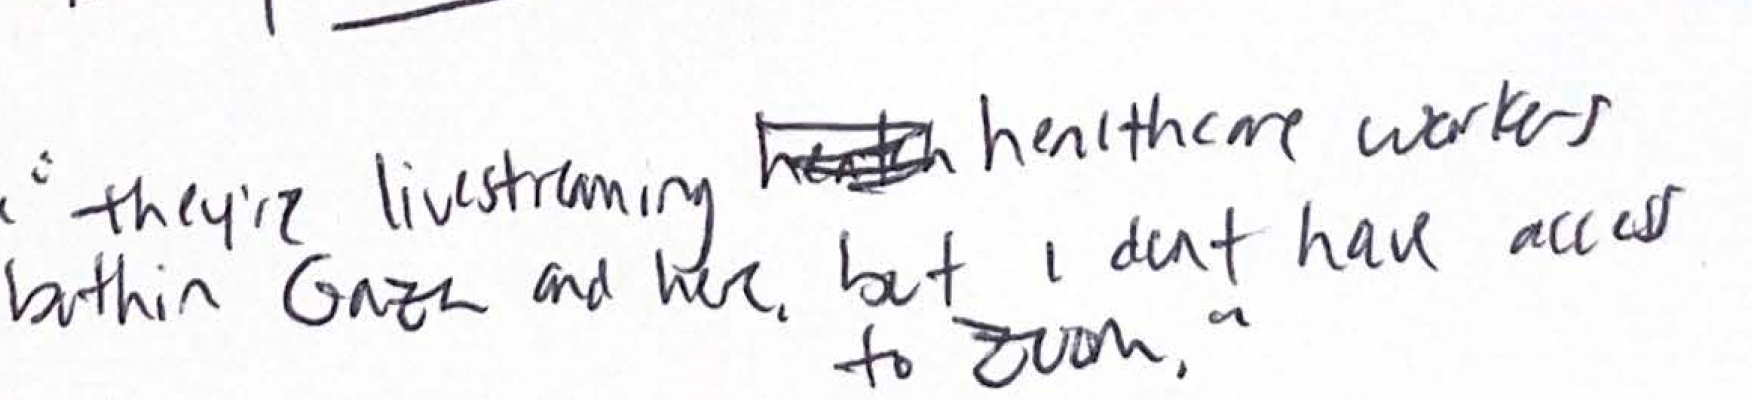 "they're livestreaming healthcare workers
bothin Gaza and here, but i dont have access
to zoom."